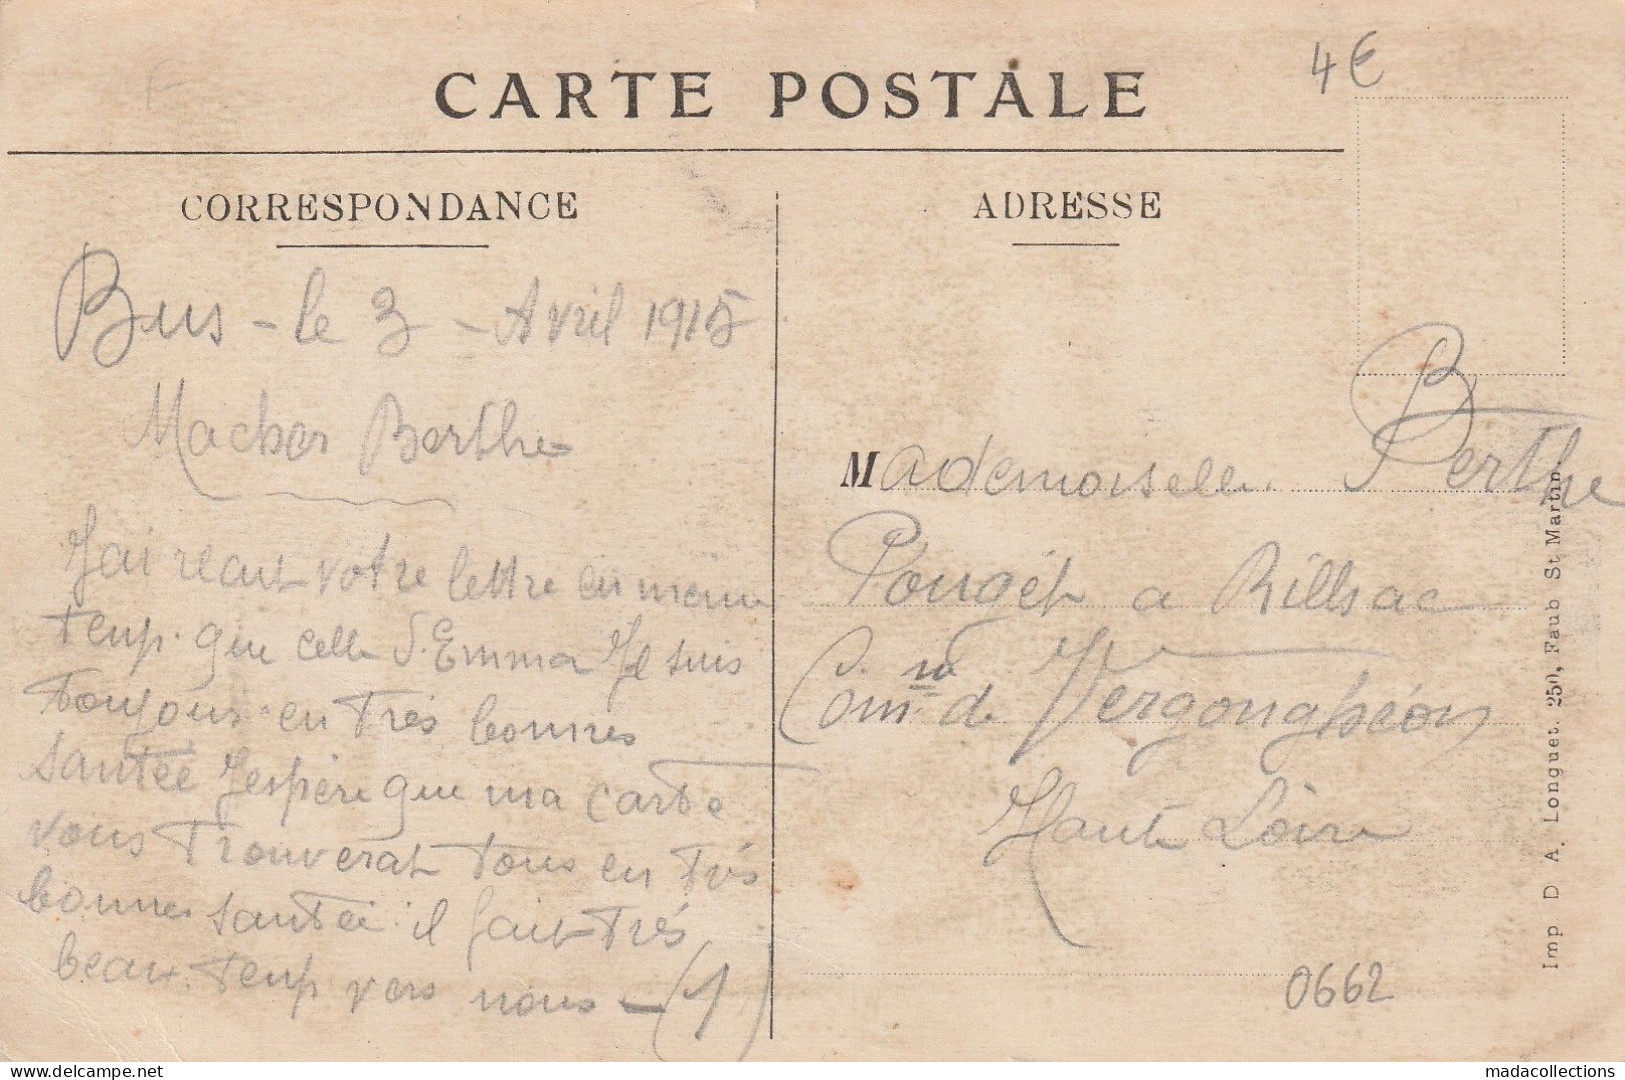 CARTE POSTALE
4€
CORRESPONDANCE
Bus - le 3 - Avril 1915
Macher Berthe
J'ai recut votre lettre en mème
temp. que celle d'Emma Je suis
toujours en très bonnes
santèe J'espère que ma carte
vous trouverat tous en très
bonne santèe il fait très
beau temp vers nous - (1)
ADRESSE
Mademoiselle Berthe
Pougèt a Rillsac
Com.ne de Vergonghéon
Haute Loire
0662
Imp D. A. Longuet. 250, Faub St Martin.
delcampe.net
madacollections